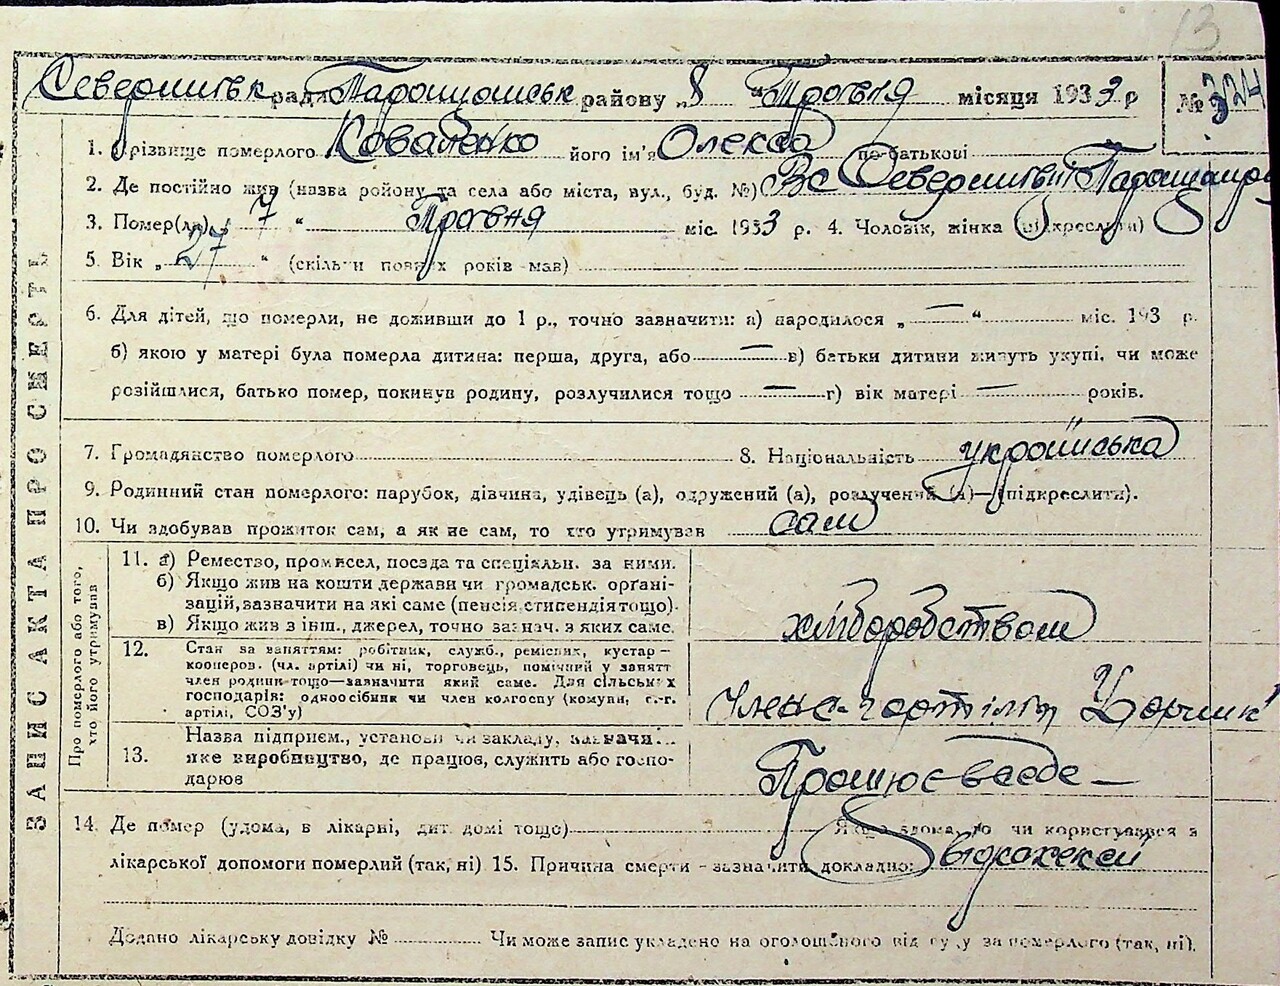 13
ради Таращанськ району „8 “ Травня місяця 1933 р № 324
1. Прізвище померлого Коваленко його ім'я Олекса по батькові
2. Де постійно жив (назва району та села або міста, вул., буд. №)
3. Помер(ла) „ 7 “ Травня міс. 1933 р. 4. Чоловік, жінка (підкреслити)
5. Вік „ 27 “ (скільки повних років мав)
6. Для дітей, що померли, не доживши до 1 р., точно зазначити: а) народилося „ — “ міс. 193 р.
б) якою у матері була померла дитина: перша, друга, або — в) батьки дитини живуть укупі, чи може
розійшлися, батько помер, покинув родину, розлучилися тощо — г) вік матері — років.
7. Громадянство померлого 8. Національність українська
9. Родинний стан померлого: парубок, дівчина, удівець (а), одружений (а), розлучений (а)—(підкреслити).
10. Чи здобував прожиток сам, а як не сам, то хто утримував сам
ЗАПИС АКТА ПРО СМЕРТЬ
Про померлого або того,
хто його утримував
11. а) Ремество, промисел, посада та спеціяльн. за ними.
б) Якщо жив на кошти держави чи громадськ. організацій, зазначити на які саме (пенсія, стипендія тощо).
в) Якщо жив з інш., джерел, точно зазнач. з яких саме.
хліборобством
12. Стан за заняттям: робітник, служб., ремісник, кустар—
кооперов. (чл. артілі) чи ні, торговець, помічний у занятт
член родини тощо—зазначити який саме. Для сільських
господарів: одноосібник чи член колгоспу (комуни, с.-г.
артілі, СОЗ'у)
13. Назва підприєм., установи чи закладу, зазначи...
яке виробництво, де працює, служить або господарює
14. Де помер (удома, в лікарні, дит. домі тощо) Якщо вдома, то чи користувався з
лікарської допомоги померлий (так, ні) 15. Причина смерти - зазначити докладно:
Додано лікарську довідку № Чи може запис укладено на оголошеного від суду за померлого (так, ні).